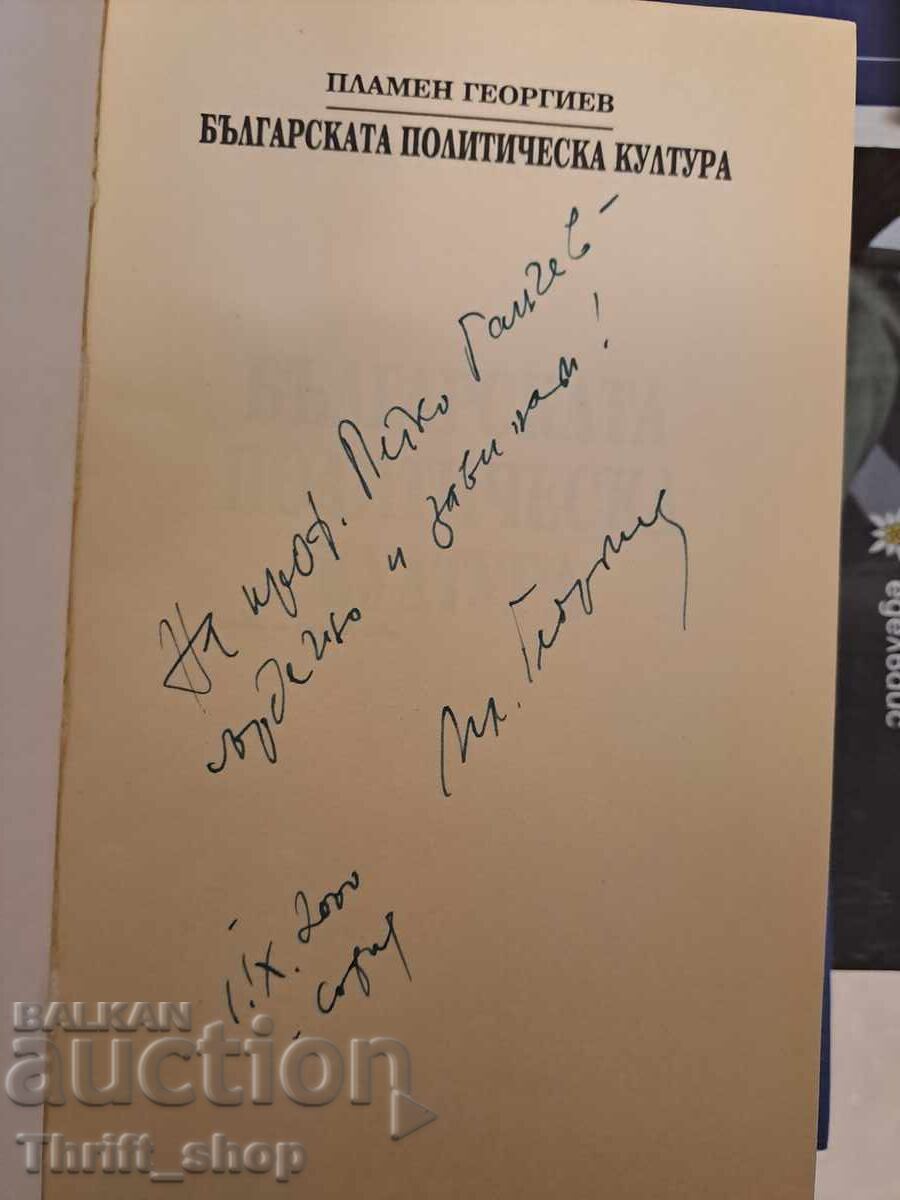 ПЛАМЕН ГЕОРГИЕВ
БЪЛГАРСКАТА ПОЛИТИЧЕСКА КУЛТУРА
На проф. Петко Ганчев -
сърдечно и
Пл. Георгиев
1.X. 2000
- София
еделвайс
BALKAN
auction
Thrift_shop